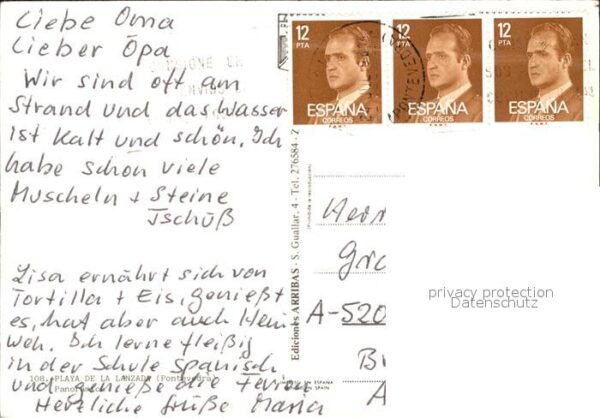 Liebe Oma
Lieber Opa
Wir sind oft am
Strand und das Wasser
ist kalt und schön. Ich
habe schon viele
Muscheln + Steine
Tschüß
Lisa ernährt sich von
Tortilla + Eis, genießt
es, hat aber auch Heim
weh. Ich lerne fleißig
in der Schule Spanisch
und genieße die Ferien
Herzliche Grüße Maria
108. PLAYA DE LA LANZADA (Pontevedra)
Ediciones ARRIBAS - S. Guallar, 4 - Tel. 276584 - Z
12
PTA
ESPAÑA
CORREOS
12
PTA
ESPAÑA
CORREOS
12
PTA
ESPAÑA
CORREOS
PONTEVED
A-520
privacy protection
Datenschutz